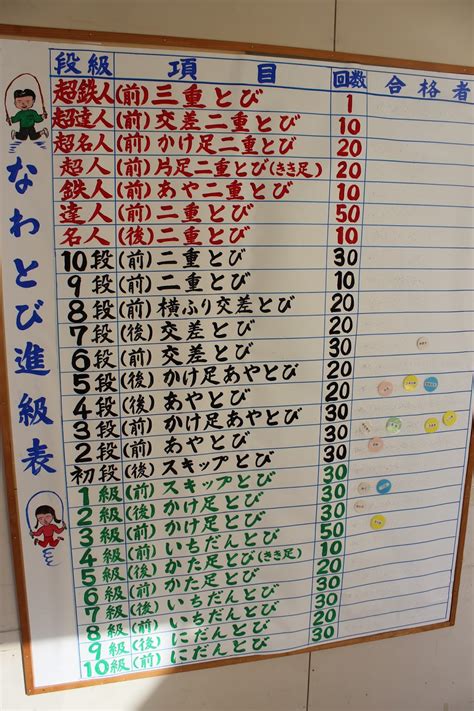 なわとび進級表
段級 項目 回数 合格者
超鉄人(前)三重とび 1
超達人(前)交差二重とび 10
超名人(前)かけ足二重とび 20
超人(前)片足二重とび(きき足) 20
鉄人(前)あや二重とび 10
達人(前)二重とび 50
名人(後)二重とび 10
10段(前)二重とび 30
9段(前)二重とび 10
8段(前)横ふり交差とび 20
7段(後)交差とび 20
6段(前)交差とび 30
5段(後)かけ足あやとび 20
4段(後)あやとび 20
3段(前)かけ足あやとび 30
2段(前)あやとび 30
初段(後)スキップとび 30
1級(前)スキップとび 30
2級(後)かけ足とび 30
3級(前)かけ足とび 30
4級(前)いちだんとび 50
5級(後)かた足とび(きき足) 10
6級(前)かた足とび 30
7級(後)いちだんとび 30
8級(前)いちだんとび 20
9級(後)にだんとび 30
10級(前)にだんとび 30